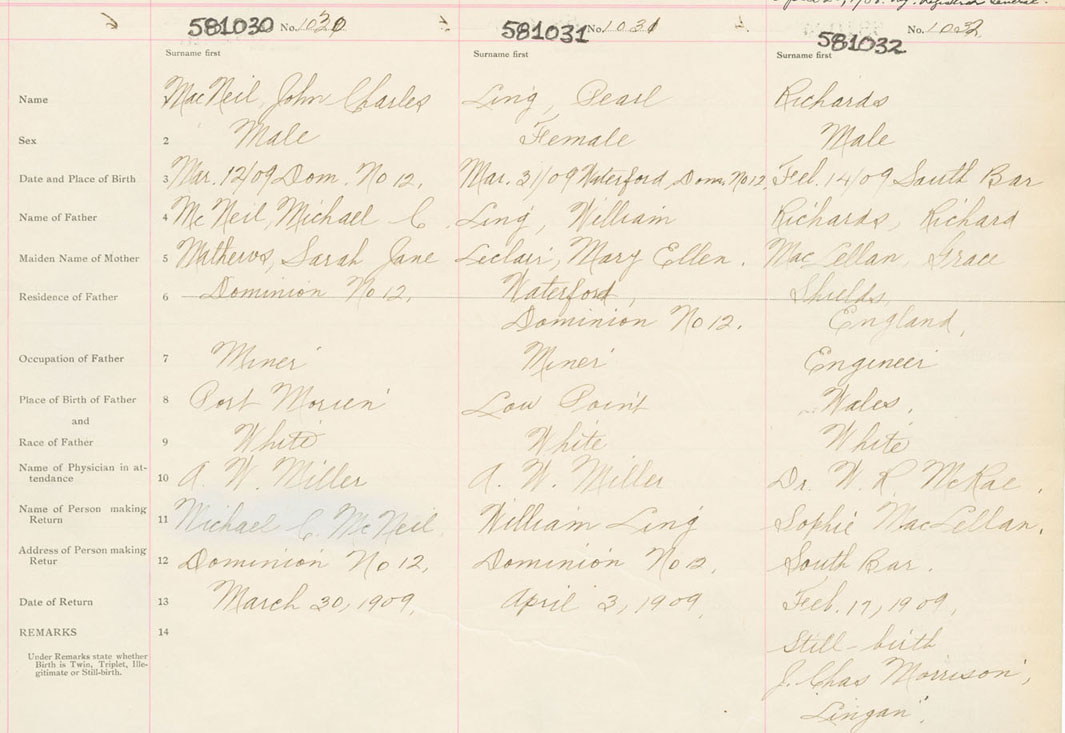 April 21, 1908. by. Registrar General.
581030 No. 1030 581031 No. 1031 581032 No. 1032
Surname first Surname first Surname first
Name MacNeil, John Charles Ling, Pearl Richards
Sex 2 Male Female Male
Date and Place of Birth 3 Mar. 12/09 Dom. No 12. Mar. 31/09 Waterford, Dom. No 12 Feb. 14/09 South Bar
Name of Father 4 McNeil, Michael C. Ling, William Richards, Richard
Maiden Name of Mother 5 Mathews, Sarah Jane Leclair, Mary Ellen. MacLellan, Grace
Residence of Father 6 Dominion No 12. Waterford, Shields,
Dominion No 12. England,
Occupation of Father 7 Miner Miner Engineer
Place of Birth of Father 8 Port Morien Low Point Wales.
and
Race of Father 9 White White White
Name of Physician in at-
tendance 10 A. W. Miller A. W. Miller Dr. W. R. McRae.
Name of Person making
Return 11 Michael C. McNeil. William Ling Sophie MacLellan.
Address of Person making
Retur 12 Dominion No 12. Dominion No 12. South Bar.
Date of Return 13 March 30, 1909. April 3, 1909. Feb. 17, 1909.
REMARKS 14 Still-birth
Under Remarks state whether
Birth is Twin, Triplet, Ille-
gitimate or Still-birth.
J. Chas Morrison,
Lingan.